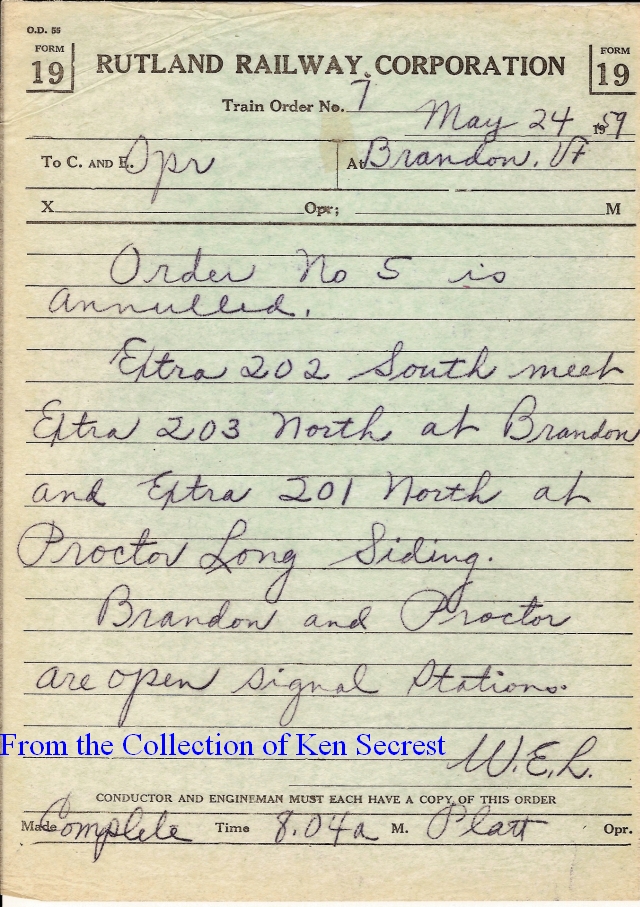 O.D. 55
FORM 19 RUTLAND RAILWAY CORPORATION FORM 19
Train Order No. 7
May 24 1959
To C. AND E. Opr At Brandon, Vt
X Opr; M
Order No 5 is
annulled.
Extra 202 South meet
Extra 203 North at Brandon
and Extra 201 North at
Proctor Long Siding.
Brandon and Proctor
are open signal Stations.
From the Collection of Ken Secrest
W.E.L.
CONDUCTOR AND ENGINEMAN MUST EACH HAVE A COPY OF THIS ORDER
Made Complete Time 8.04a M. Platt Opr.